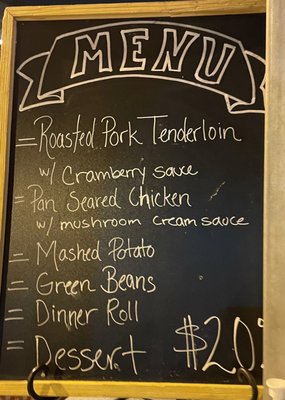 MENU
= Roasted Pork Tenderloin
w/ Cramberry sauce
= Pan Seared Chicken
w/ mushroom cream sauce
= Mashed Potato
= Green Beans
= Dinner Roll
= Dessert $20